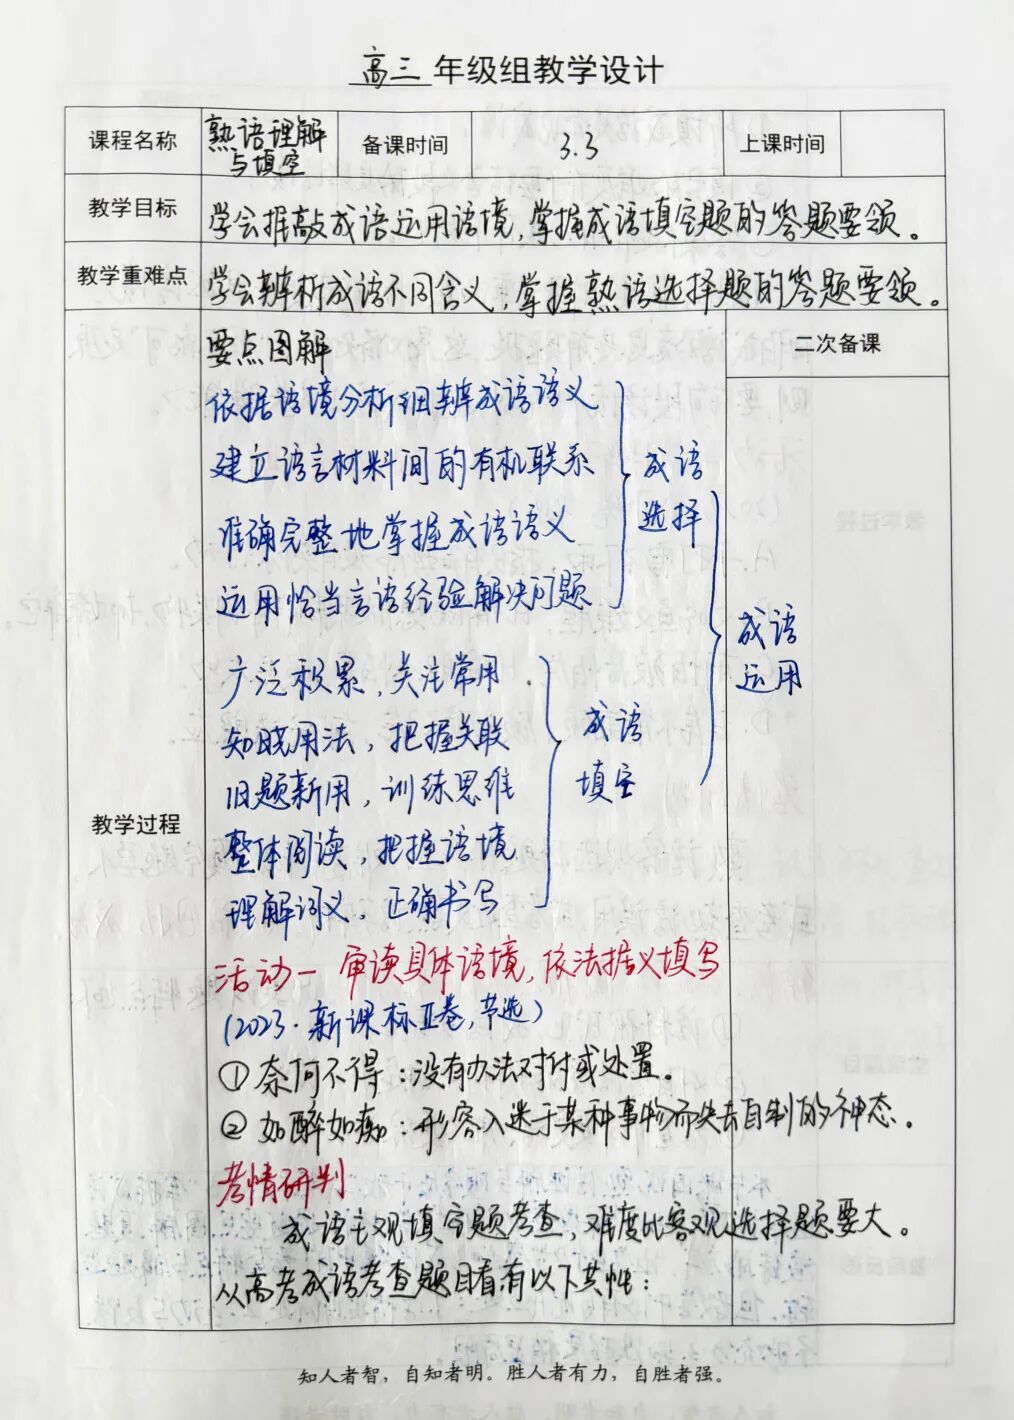 高三年级组教学设计
课程名称 熟语理解与填空 备课时间 3.3 上课时间
教学目标 学会推敲成语运用语境,掌握成语填空题的答题要领。
教学重难点 学会辨析成语不同含义,掌握熟语选择题的答题要领。
要点图解
二次备课
依据语境分析细辨成语语义
建立语言材料间的有机联系
准确完整地掌握成语语义
运用恰当言语经验解决问题
成语
选择
广泛积累,关注常用
知晓用法,把握关联
旧题新用,训练思维
整体阅读,把握语境
理解词义,正确书写
成语
填空
成语
运用
教学过程
活动一 审读具体语境,依法据义填写
(2023·新课标Ⅱ卷,节选)
①奈何不得:没有办法对付或处置。
②如醉如痴:形容入迷于某种事物而失去自制的神态。
考情研判
成语主观填空题考查,难度比客观选择题要大。
从高考成语考查题目看,有以下共性:
知人者智,自知者明。胜人者有力,自胜者强。